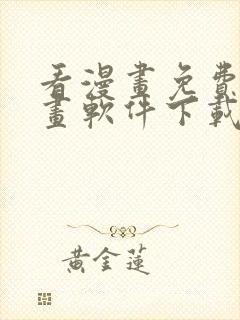 看漫畫免費
畫軟件下載
黃金蓮